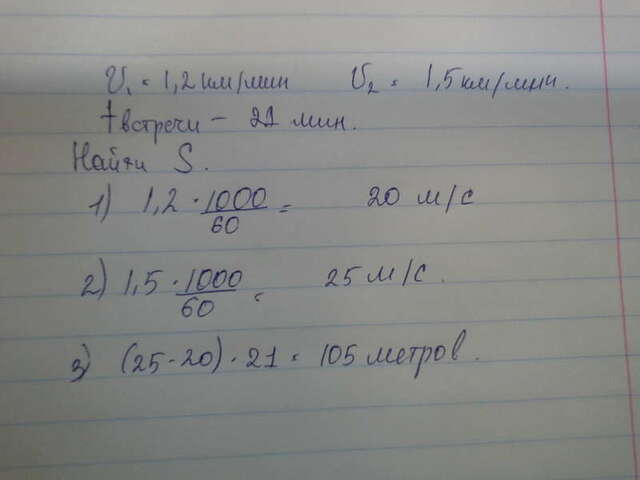 V₁ = 1,2 км/мин V₂ = 1,5 км/мин.
t встречи - 21 мин.
Найти S.
1) 1,2 · 1000/60 = 20 м/с
2) 1,5 · 1000/60 = 25 м/с.
3) (25-20) · 21 = 105 метров.